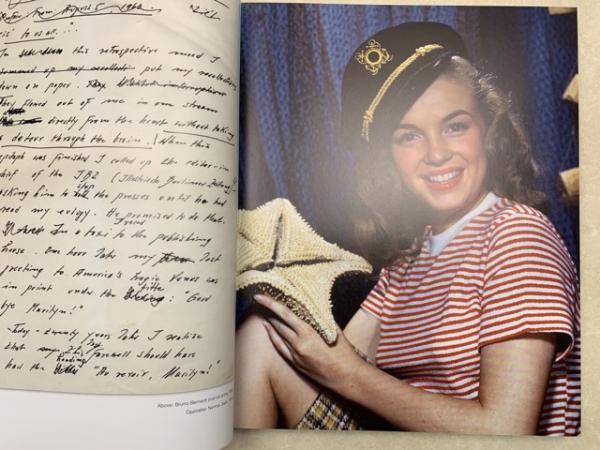 August 5, 1962
is" to us all. ..."
In this retrospective mood I
put my recollections
down on paper.
They flowed out of me in one stream
directly from the heart without taking
a detour through the brain. When this
epitaph was finished I called up the editor-in
chief of the (Illustrierte Berliner Zeitung)
asking him to stop the presses until he had
read my eulogy. He promised to do that.
In a taxi to the publishing
house. One hour later my last
greeting to America's tragic Venus was
in print under the title: "Good
bye Marilyn!"
Today - twenty years later I realize
that my farewell should have
had the heading "Au revoir, Marilyn!"
Above: Bruno Bernard journal entry,
Opposite: Norma Jean,